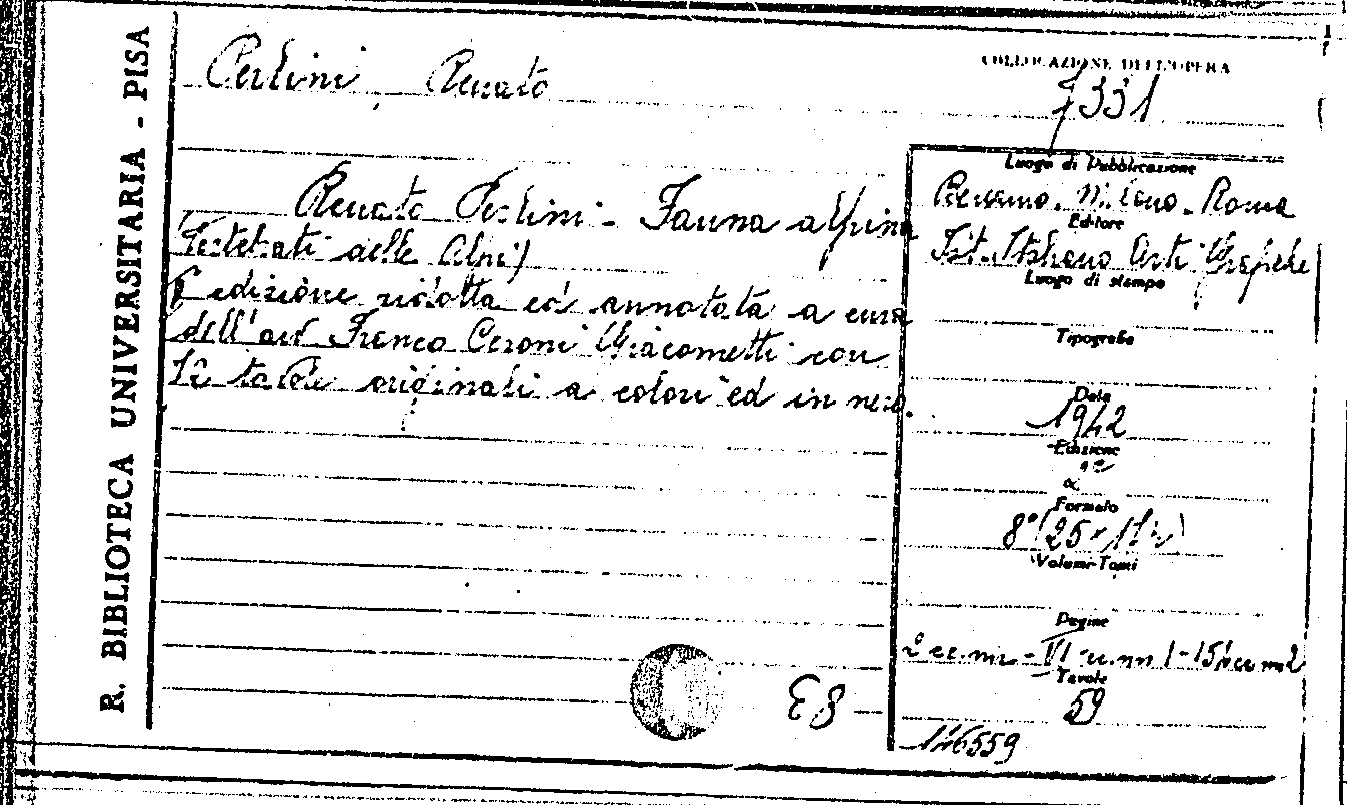 R. BIBLIOTECA UNIVERSITARIA - PISA
Perlini, Renato
COLLOCAZIONE DELL'OPERA
331
Renato Perlini - Fauna alpina
(Vertebrati delle Alpi)
edizione ridotta ed annotata a cura
dell'aut Franco Ceroni Giacometti con
12 tavole originali a colori ed in nero.
Luogo di Pubblicazione
Bergamo. Milano. Roma
Editore
Ist. Italiano Arti Grafiche
Luogo di stampa
Tipografia
Data
1942
Edizione
Formato
8° (25 x
Volumi-Tomi
Pagine
2 cc. nn - VI
Tavole
59
146559
E8